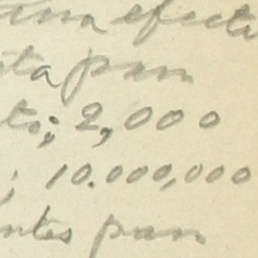 una efecti
ta para
to; 2,000
; 10.000,000
ntes para